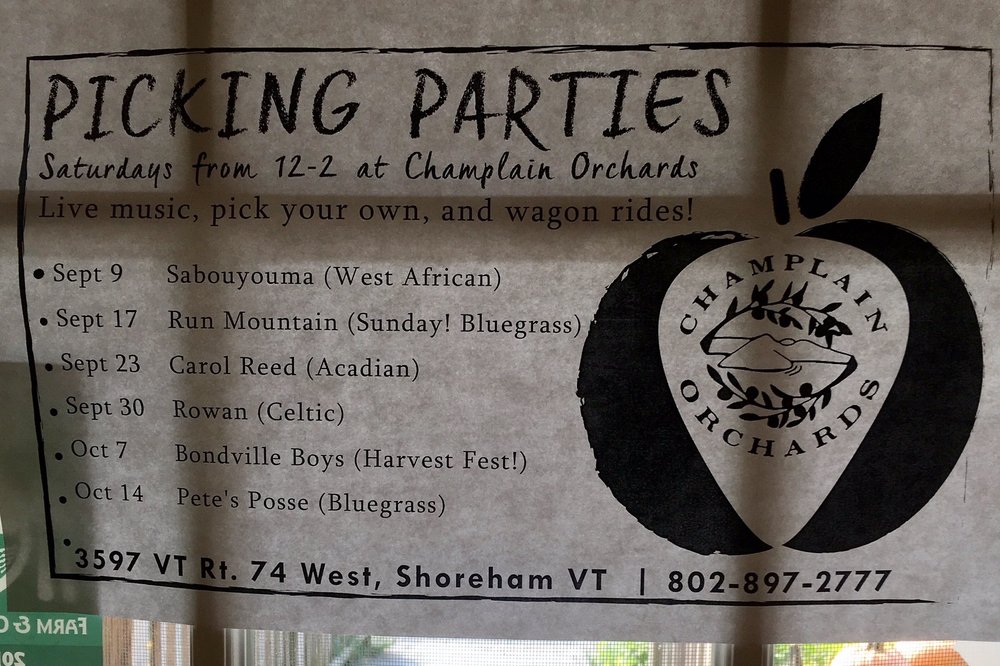 PICKING PARTIES
Saturdays from 12-2 at Champlain Orchards
Live music, pick your own, and wagon rides!
• Sept 9 Sabouyouma (West African)
• Sept 17 Run Mountain (Sunday! Bluegrass)
• Sept 23 Carol Reed (Acadian)
• Sept 30 Rowan (Celtic)
• Oct 7 Bondville Boys (Harvest Fest!)
• Oct 14 Pete's Posse (Bluegrass)
•
3597 VT Rt. 74 West, Shoreham VT | 802-897-2777
CHAMPLAIN
ORCHARDS
FARM &